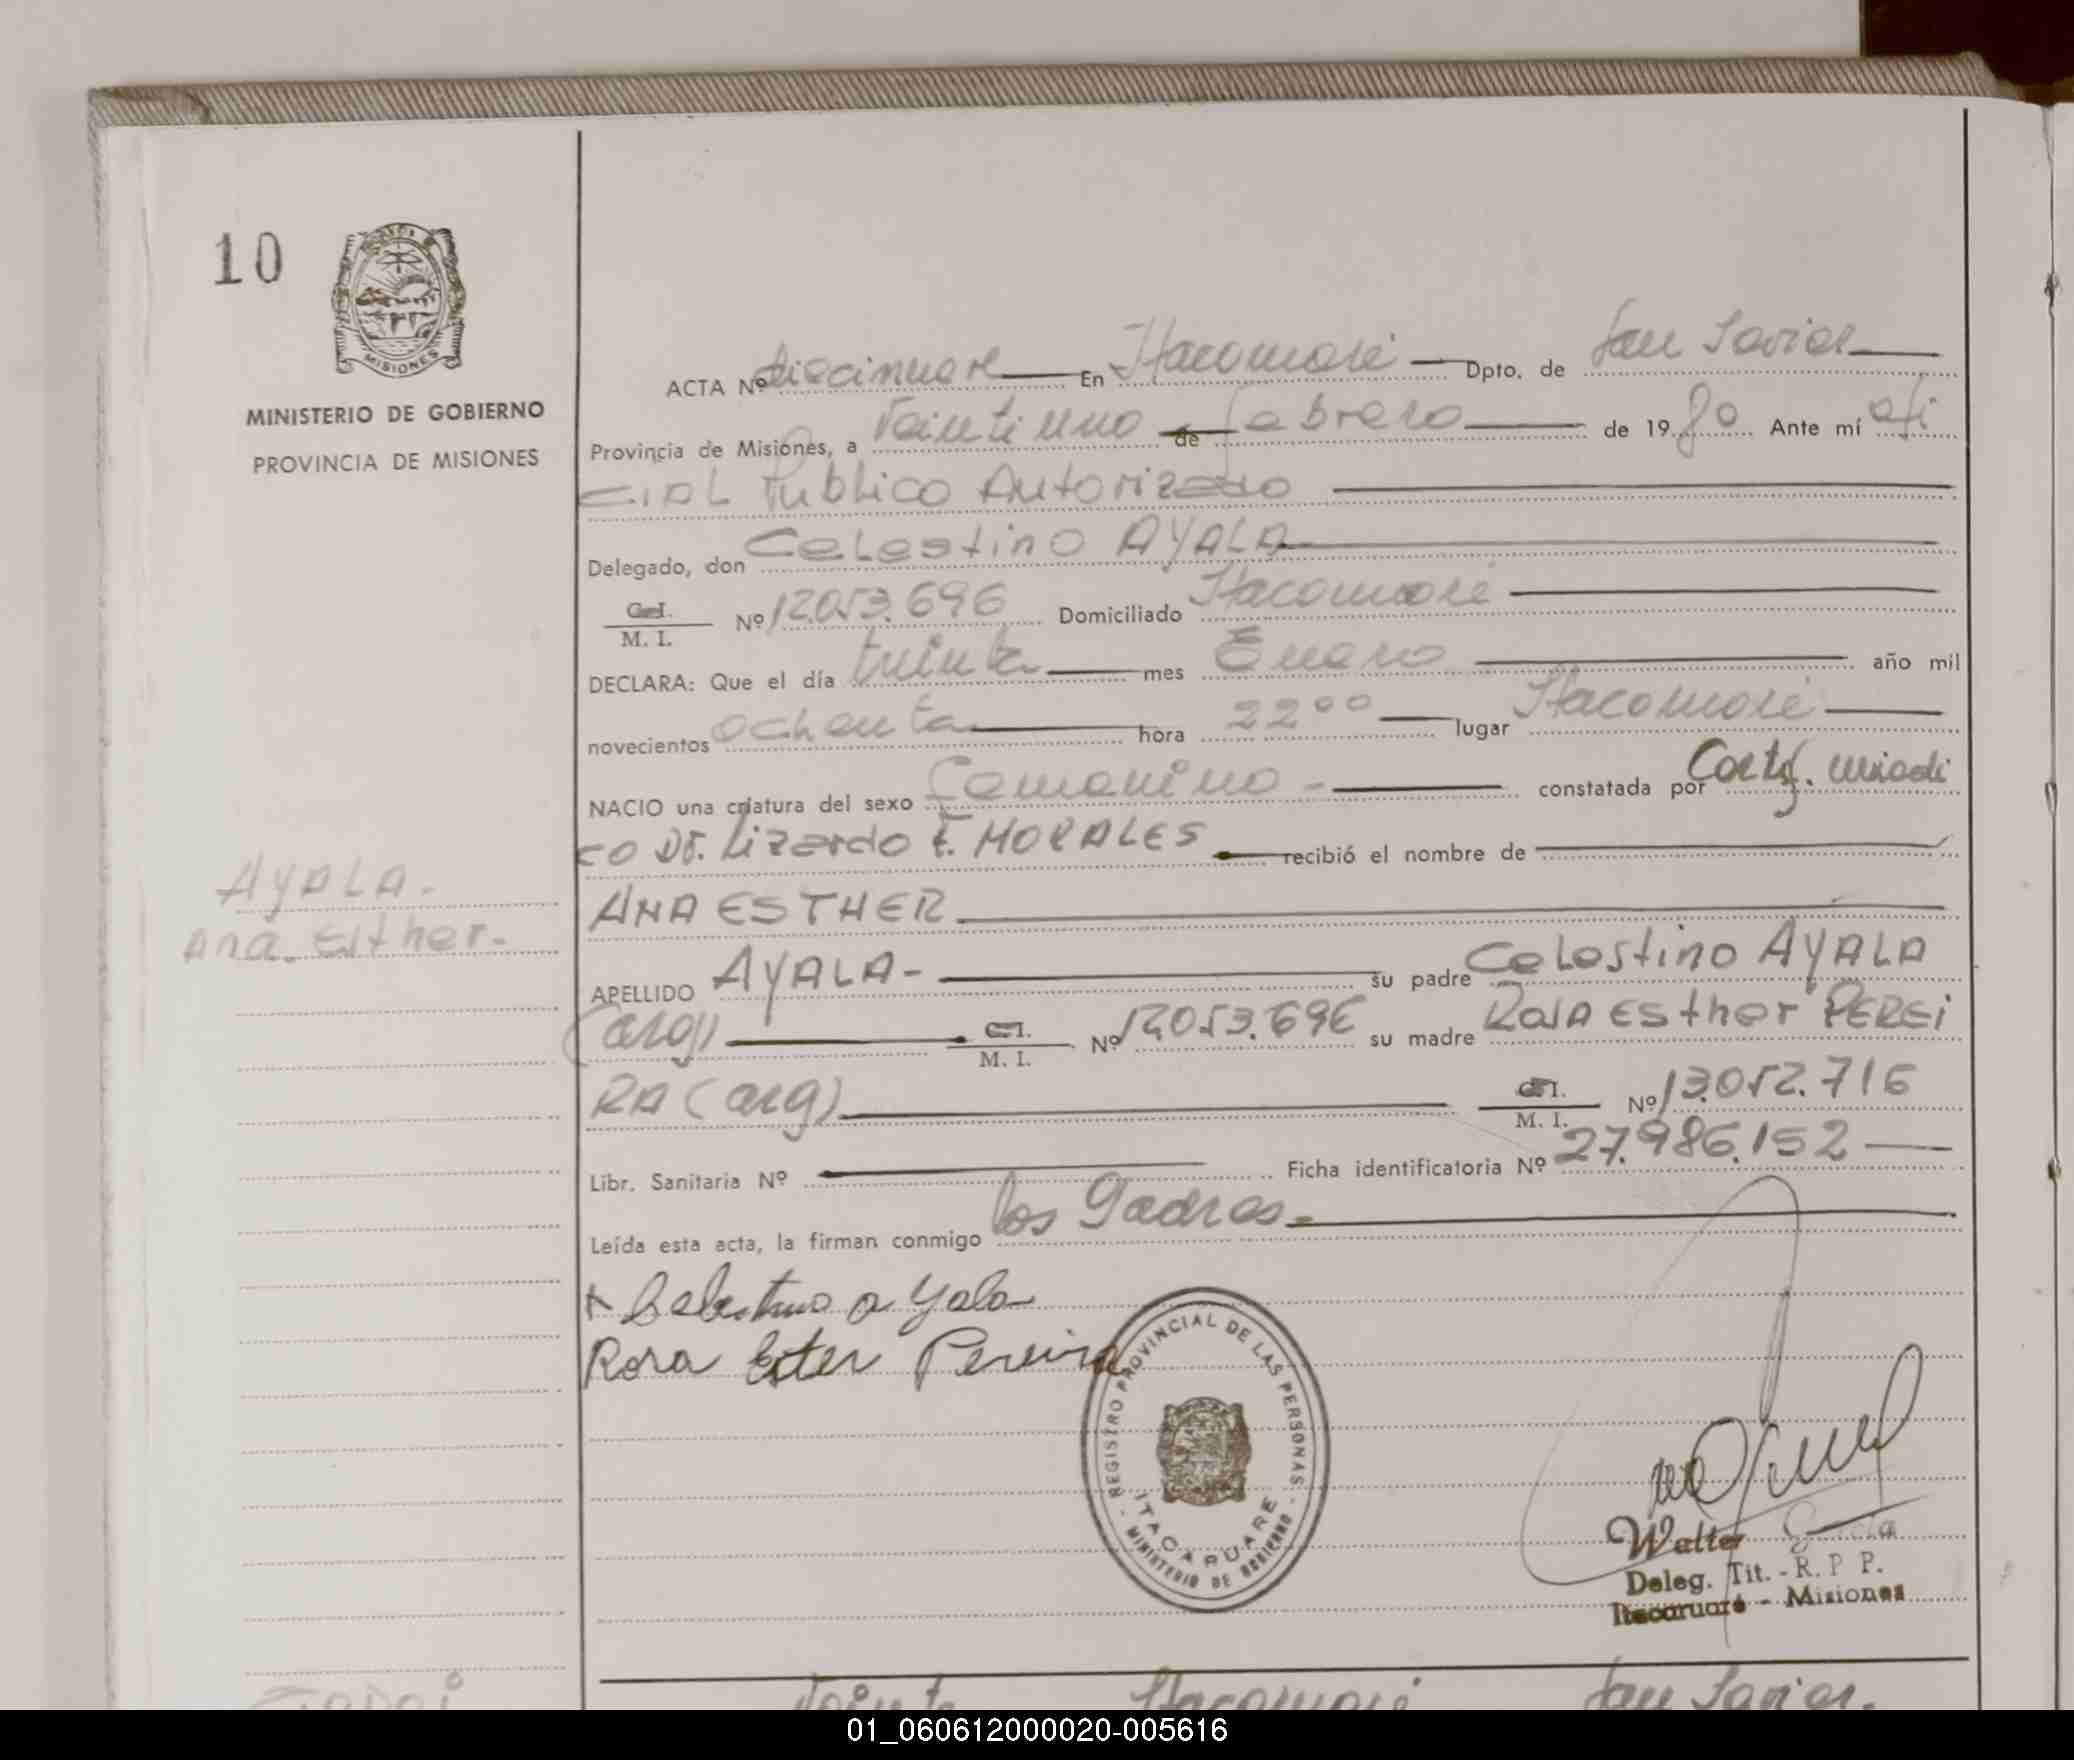 10
MISIONES
MINISTERIO DE GOBIERNO
PROVINCIA DE MISIONES
ACTA Nº diecinueve En Itacaruaré Dpto. de San Javier
Provincia de Misiones, a Veintiuno de Febrero de 1980 Ante mí ofi
cial Publico Autorizado
Delegado, don Celestino AYALA
C.I.
M. I. Nº 12.053.696 Domiciliado Itacaruaré
DECLARA: Que el día treinta mes Enero año mil
novecientos ochenta hora 22°° lugar Itacaruaré
NACIO una criatura del sexo Femenino - constatada por Certf. médi
co Dr. Lizardo F. MORALES recibió el nombre de
AYALA.
ANA ESTHER
Ana. Esther.
APELLIDO AYALA- su padre Celestino AYALA
(arg) C.I.
M. I. Nº 12.053.696 su madre Rosa Esther PEREI
RA (arg) C.I.
M. I. Nº 13.052.716
Libr. Sanitaria Nº Ficha identificatoria Nº 27.986.152
Leída esta acta, la firman conmigo los Padres.
x Celestino ayala
Rosa Ester Pereira
REGISTRO PROVINCIAL DE LAS PERSONAS
ITACARUARE
MINISTERIO DE GOBIERNO
Walter
Deleg. Tit. - R. P P.
Itacaruaré - Misiones
Veinte Itacaruaré San Javier.
01_060612000020-005616